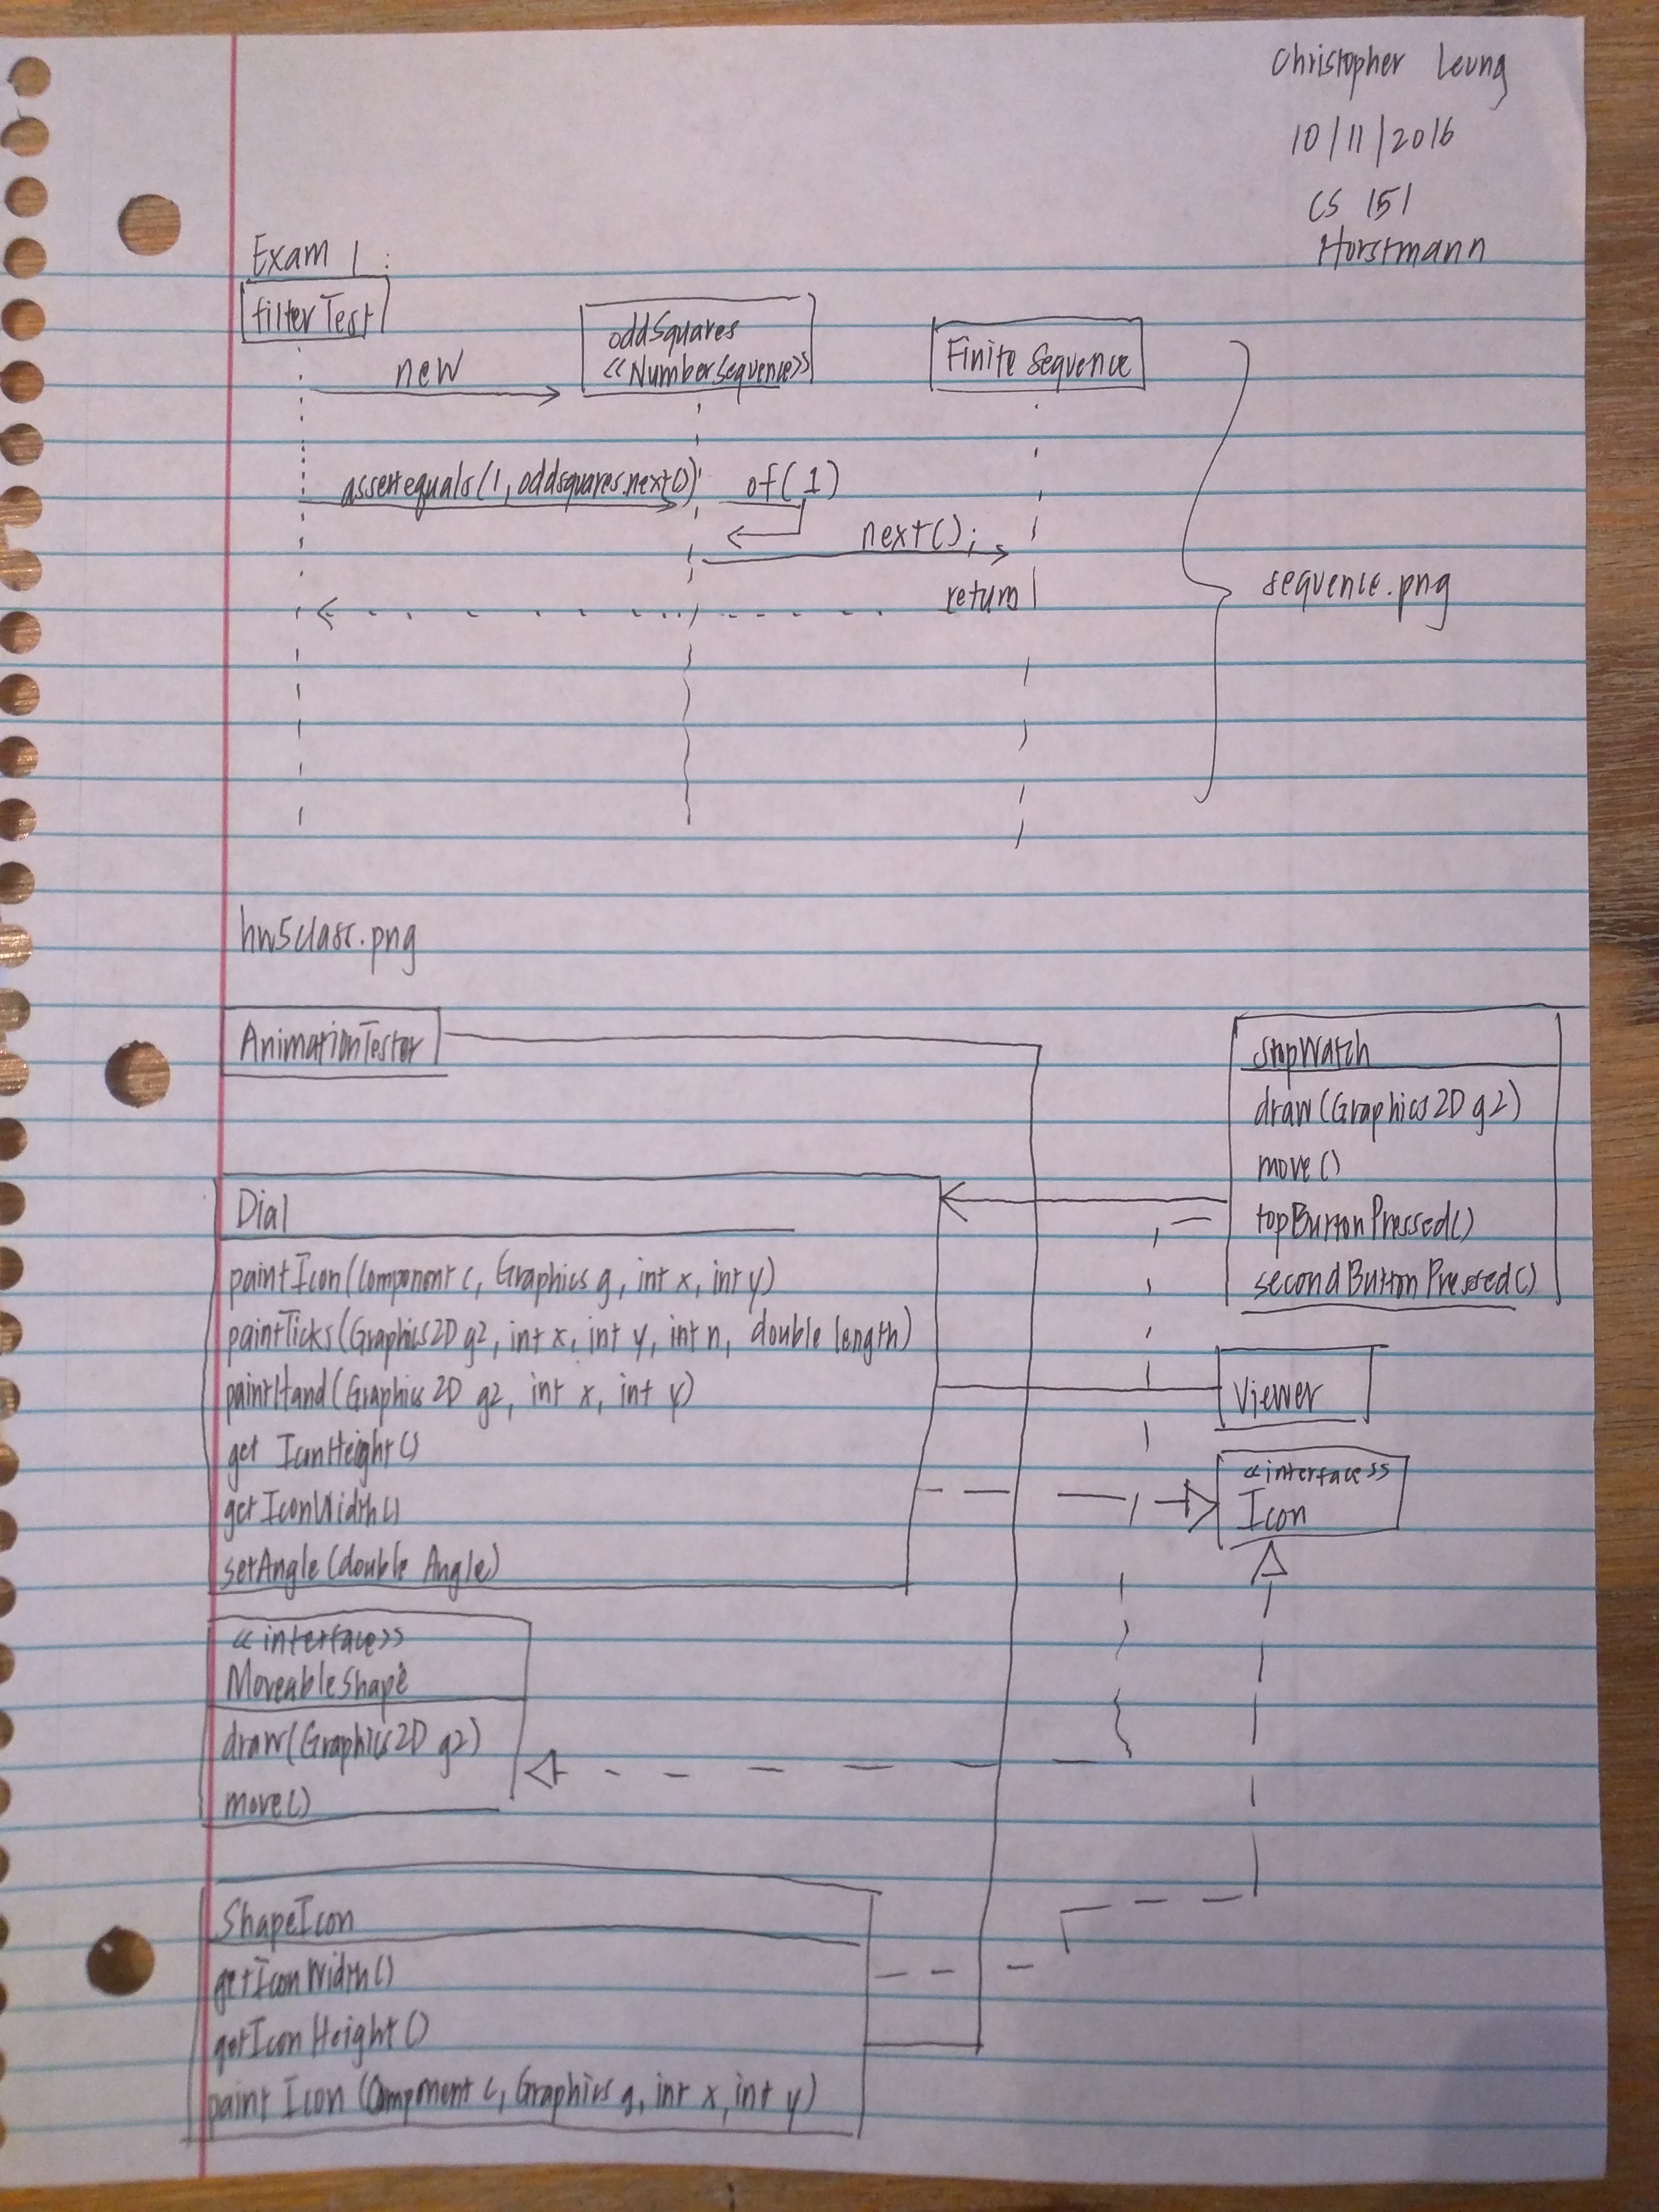 Christopher Leung
10/11/2016
CS 151
Horstmann
Exam 1:
filterTest
oddSquares
<<NumberSequence>>
Finite Sequence
new
assertequals(1, oddsquares.next())
of(1)
next();
return
sequence.png
hw5class.png
AnimationTester
StopWatch
draw(Graphics2D g2)
move()
topButtonPressed()
secondButtonPressed()
Dial
paintIcon(Component c, Graphics g, int x, int y)
paintTicks(Graphics2D g2, int x, int y, int n, double length)
paintHand(Graphics2D g2, int x, int y)
get IconHeight()
getIconWidth()
setAngle(double Angle)
Viewer
<<interface>>
Icon
<<interface>>
MoveableShape
draw(Graphics2D g2)
move()
ShapeIcon
getIconWidth()
getIconHeight()
paint Icon (Component c, Graphics g, int x, int y)